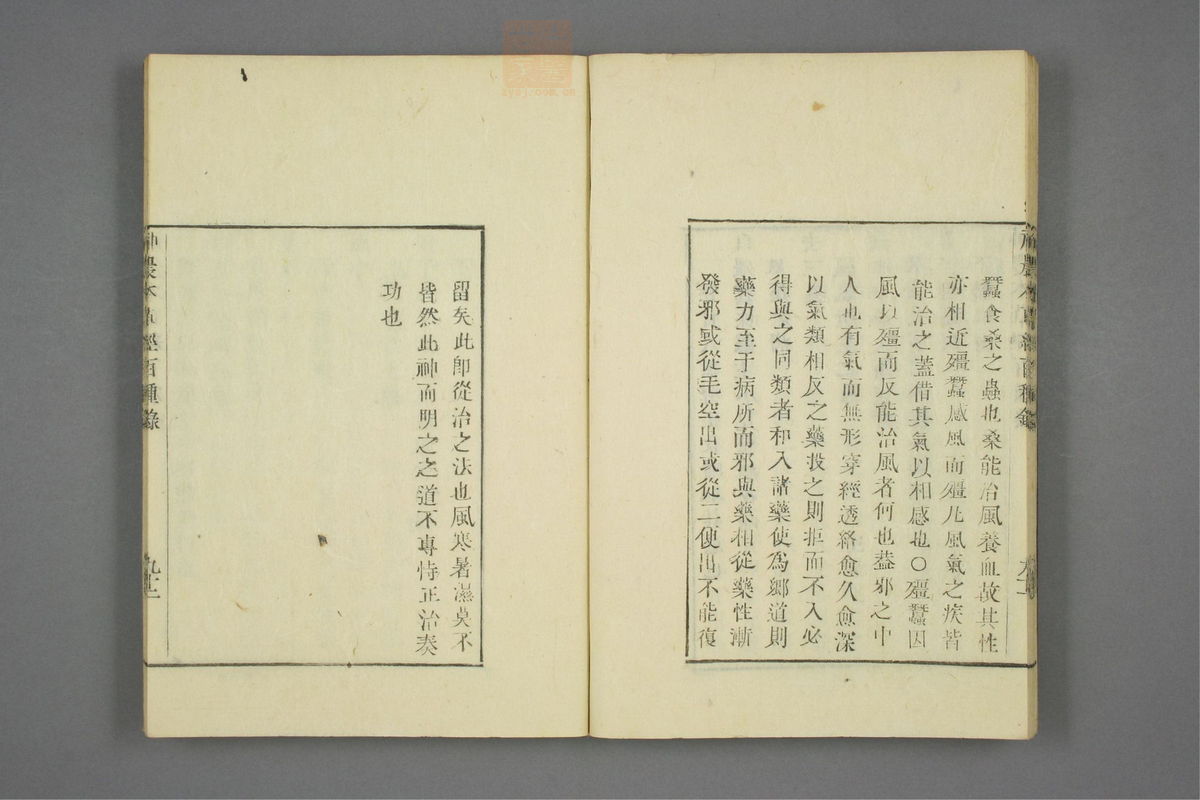 蠶食桑之蟲也桑能治風養血故其性
亦相近殭蠶感風而殭凡風氣之疾皆
能治之蓋借其氣以相感也○殭蠶因
風以殭而反能治風者何也蓋邪之中
人也有氣而無形穿經透絡愈久愈深
以氣類相反之藥投之則拒而不入必
得與之同類者和入諸藥使爲鄉道則
藥力至于病所而邪與藥相從藥性漸
發邪或從毛空出或從二便出不能復
留矣此卽從治之法也風寒暑濕莫不
皆然此神而明之之道不專恃正治奏
功也
神農本草經百種錄